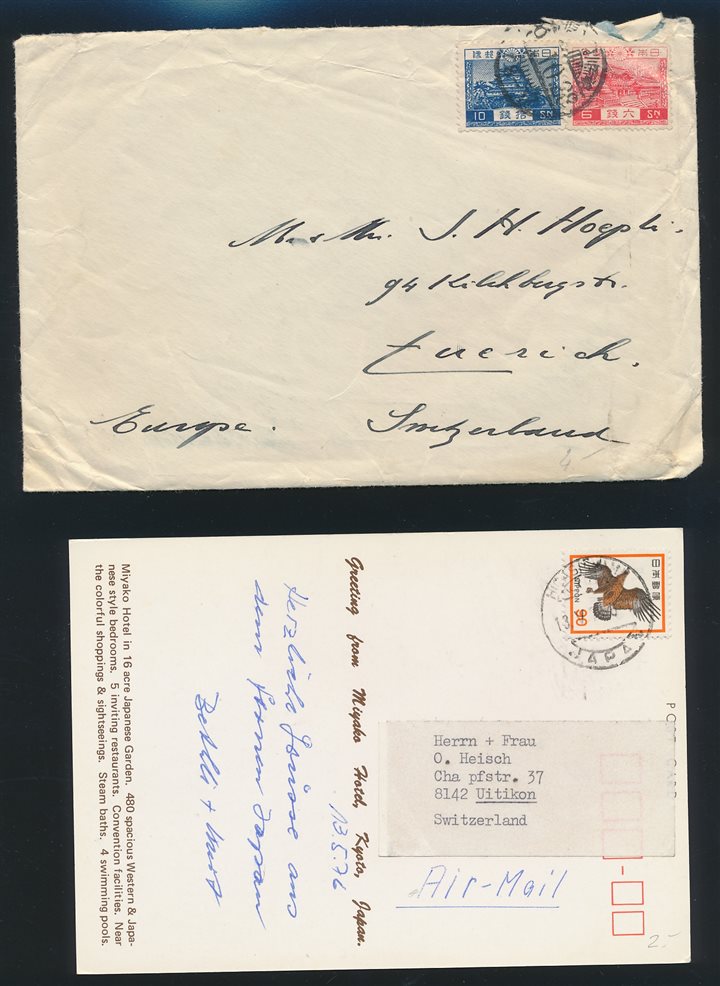 日本郵便
10 拾錢 SN
日本郵便
6 六錢 SN
Mr. & Mrs. J. H. Hoepli.
94 Kilchbergstr.
Zuerich.
Europe. Switzerland
4-
日本郵便
NIPPON
90
JAPAN
POST CARD
Herrn + Frau
O. Heisch
Cha pfstr. 37
8142 Uitikon
Switzerland
Air-Mail
2.-
Greeting from Miyako Hotel, Kyoto, Japan.
13.5.76
Herzliche Grüsse aus
dem fernen Japan
Miyako Hotel in 16 acre Japanese Garden. 480 spacious Western & Japa-
nese style bedrooms. 5 inviting restaurants. Convention facilities. Near
the colorful shoppings & sightseeings. Steam baths. 4 swimming pools.